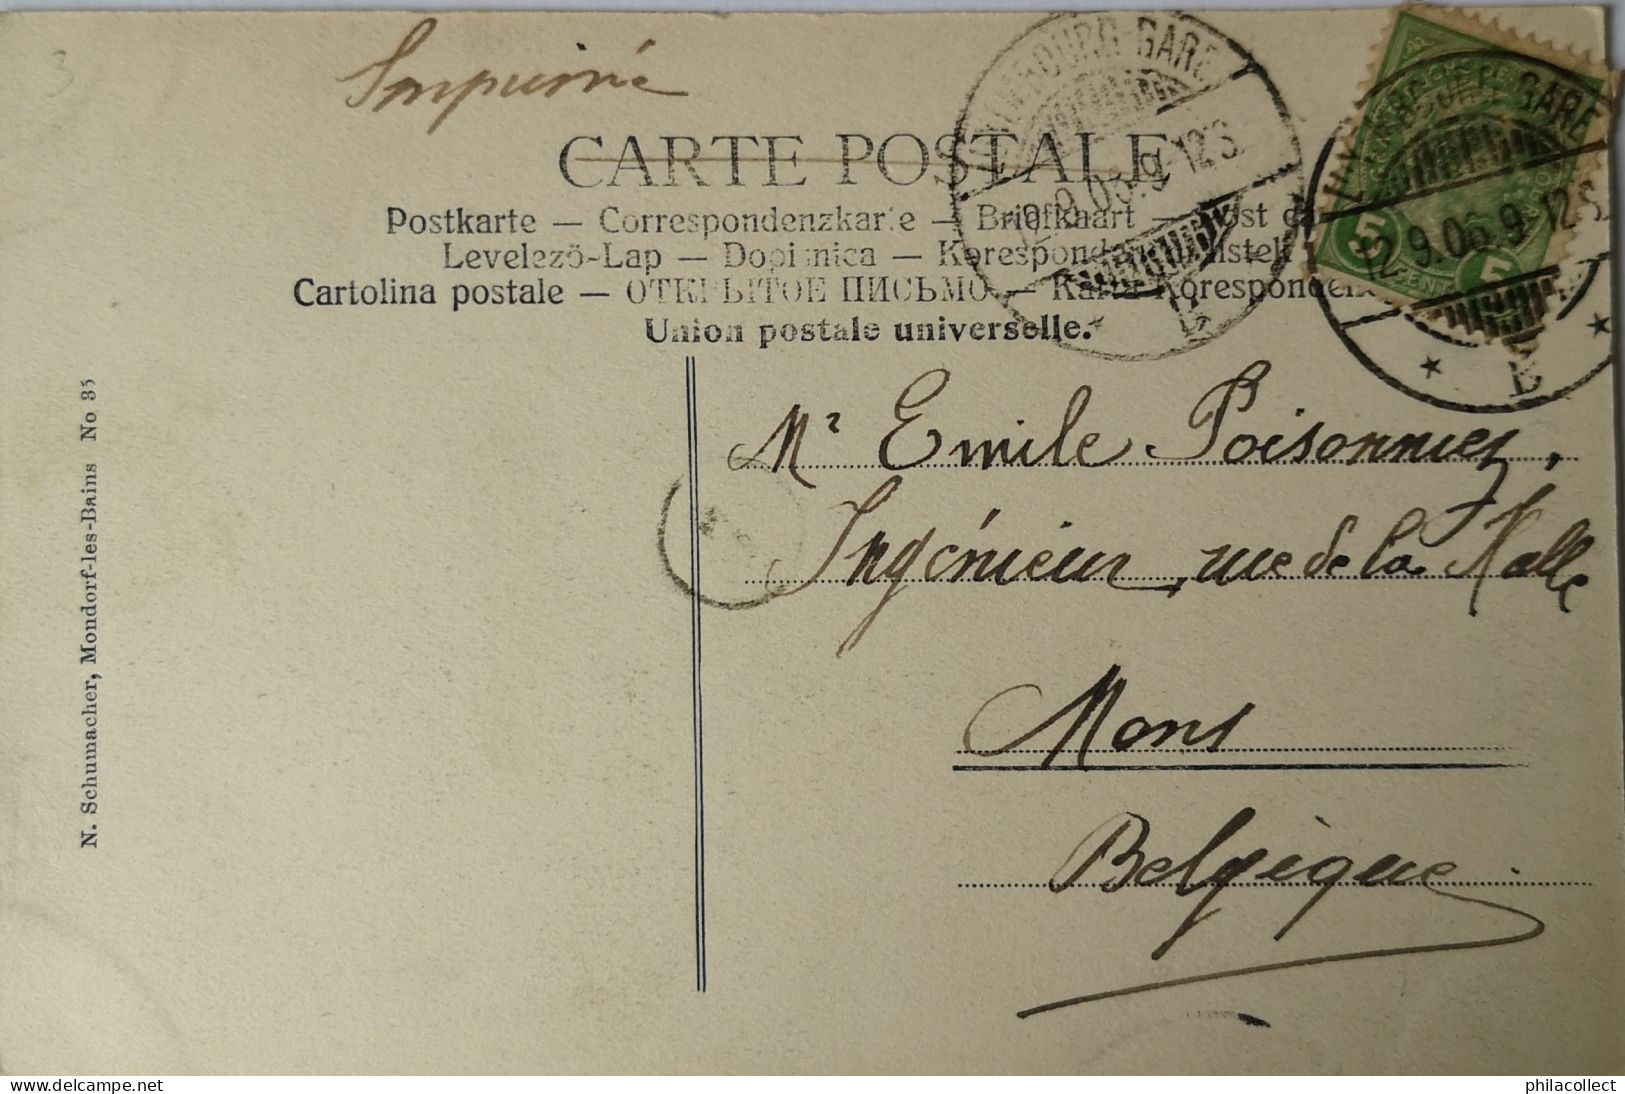 3
Imprimé
CARTE POSTALE
Postkarte — Correspondenzkarte — Briefkaart — Post ca
Levelező-Lap — Dopisnica — Korespondenční listek
Cartolina postale — ОТКРЫТОЕ ПИСЬМО — Karta Korespondenc
Union postale universelle.
LUXEMBOURG-GARE
12.9.06.9-12S
LUXEMBOURG-GARE
12.9.06.9-12S
5
5
Mr Emile Poisonnier,
Ingénieur, rue de la Halle
Mons
Belgique.
N. Schumacher, Mondorf-les-Bains No 35
philacollect